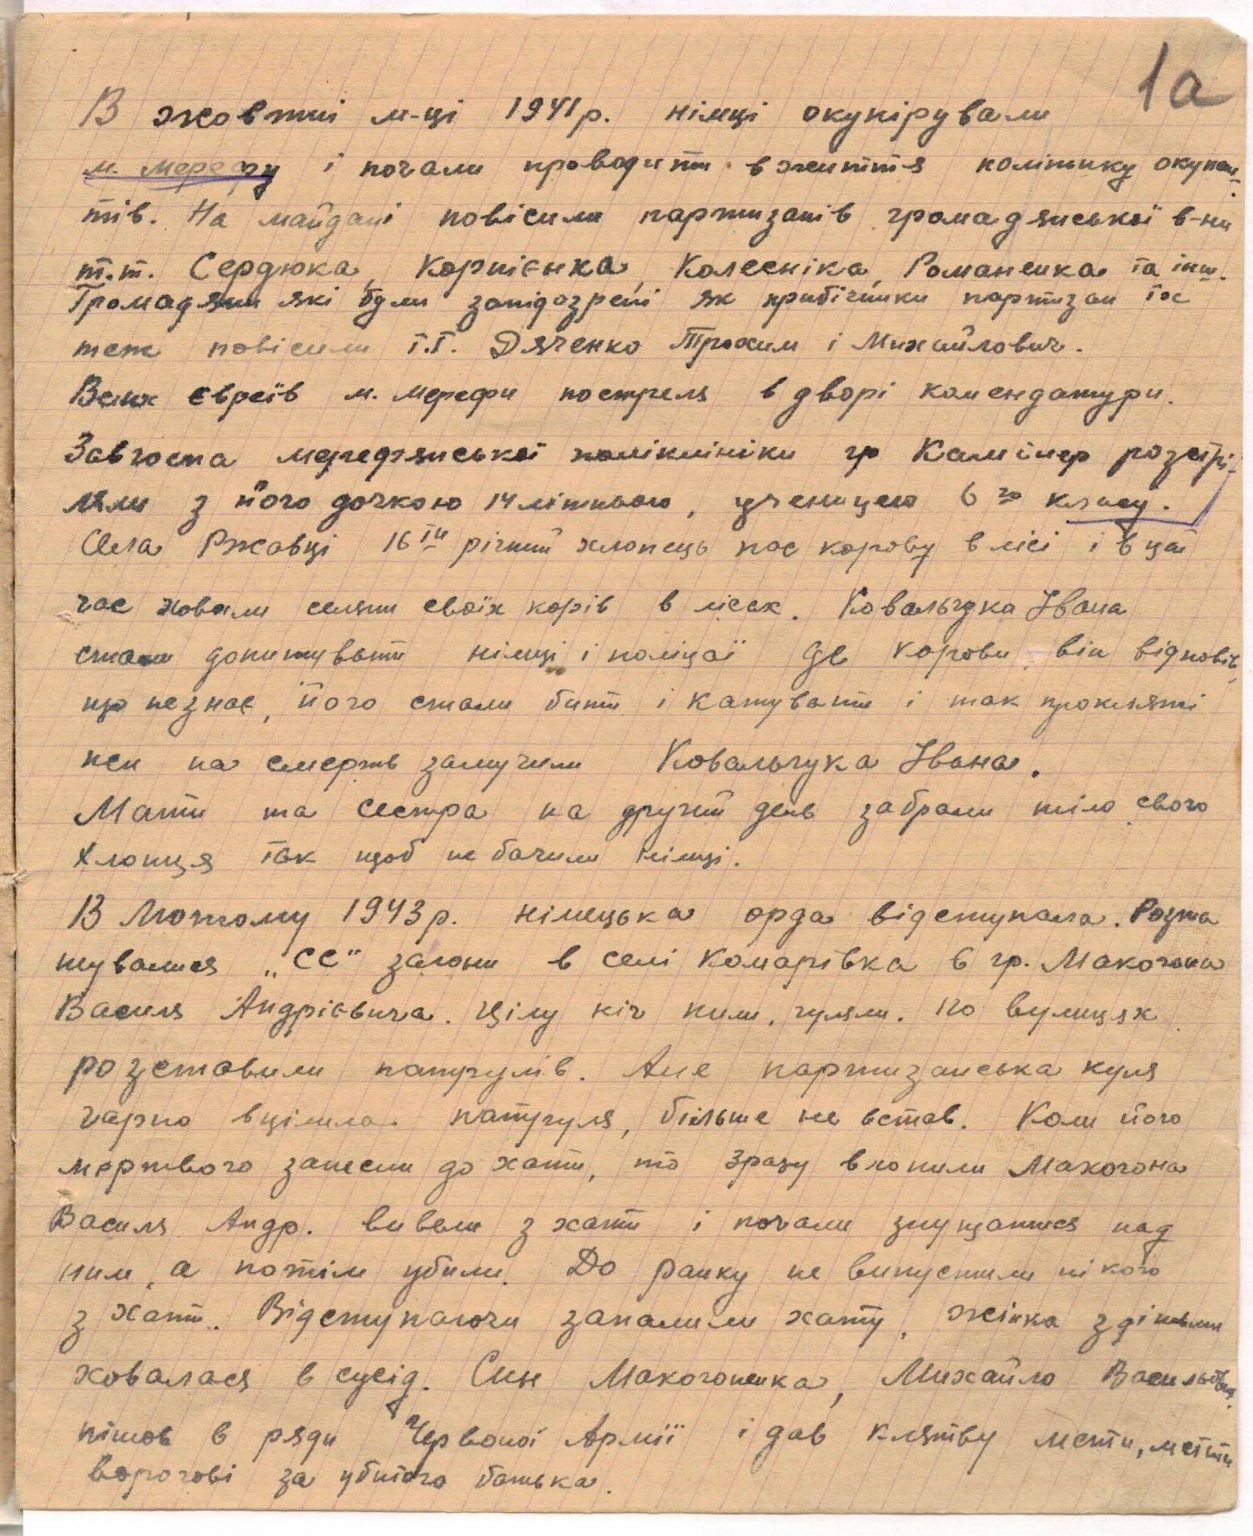 1а
В жовтні м-ці 1941 р. німці окупірували
м. Мерефу і почали проводити в життя політику окупан-
тів. На майдані повісили партизанів громадянської в-ни
т.т. Сердюка, Корнієнка, Колесніка, Романенка та інш.
Громадяни які були запідозрені як прибічники партизан їх
теж повісили т.т. Дяченко Трохим і Михайлович.
Всих євреїв м. Мерефи постреля в дворі комендатури.
Завгоспа мереф'янської поліклініки гр Камінер розстрі-
ляли з його дочкою 14 літньою, ученицею 6 го класу.
Села Ржавці 16 ти річний хлопець пас корову в лісі і в цей
час ховали селяни своїх корів в лісах. Ковальчука Івана
стали допитувати німці і поліцаї де корови, він відповів,
що не знає, його стали бити і катувати і так прокляті
пси на смерть замучили Ковальчука Івана.
Мати та сестра на другий день забрали тіло свого
хлопця так щоб не бачили німці.
В Лютому 1943 р. німецька орда відступала. Розта
шувалися „СС" загони в селі Комарівка в гр. Макогона
Василя Андрієвича. Цілу ніч пили, гуляли. По вулицях
розставили патрулів. Але партизанська куля
гарно вцілила патруля, більше не встав. Коли його
мертвого занесли до хати, то зразу вхопили Макогона
Василя Андр. вивели з хати і почали знущатися над
ним, а потім убили. До ранку не випустили нікого
з хати. Відступаючи запалили хату, жінка з дітьми
ховалася в сусід. Син Макогоненка, Михайло Васильович
пішов в ряди Червоної Армії і дав клятву мсти, мстити
ворогові за убитого батька.